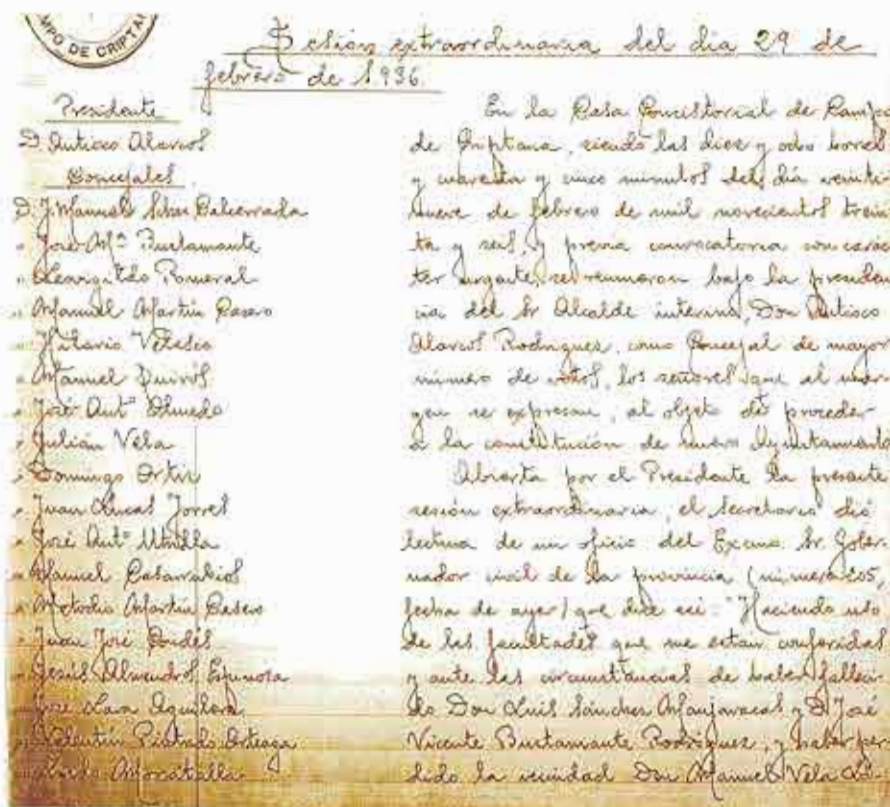 MPO DE CRIPTA
Sesión extraordinaria del dia 29 de
febrero de 1.936.
Presidente
D. Antioco Alarcos
Concejales
D. J. Manuel
" José Mª Bustamante
" Leovigildo Romeral
" Manuel Martín Casero
" Hilario Velasco
" Manuel Quirós
" José Antº Olmedo
" Julián Vela
" Domingo Ortiz
" Juan Lucas Torres
" José Antº Utrilla
" Manuel Casarrubios
" Metodio Martín Casero
" Juan José
" Jesús Almendros Espinosa
José Lara Aguilera
Valentín Pintado Arteaga
Moratalla
En la Casa Consistorial de Campo
de Criptana, siendo las diez y ocho horas
y cuarenta y cinco minutos del día veinti-
nueve de febrero de mil novecientos trein-
ta y seis, y previa convocatoria con carác-
ter urgente, se reunieron bajo la presiden-
cia del Sr Alcalde interino, Don Antioco
Alarcos Rodriguez, como Concejal de mayor
número de votos, los señores que al mar-
gen se expresan, al objeto de proceder
a la constitución de nuevo Ayuntamiento
Abierta por el Presidente la presente
sesión extraordinaria, el Secretario dió
lectura de un oficio del Excmo. Sr. Gober-
nador civil de la provincia (número 205,
fecha de ayer) que dice así: "Haciendo uso
de las facultades que me están conferidas
y ante las circunstancias de haber falleci-
do Don Luis Sánchez Manjavacas y D. José
Vicente Bustamante Rodriguez, y haber per-
dido la vecindad Don Manuel Vela